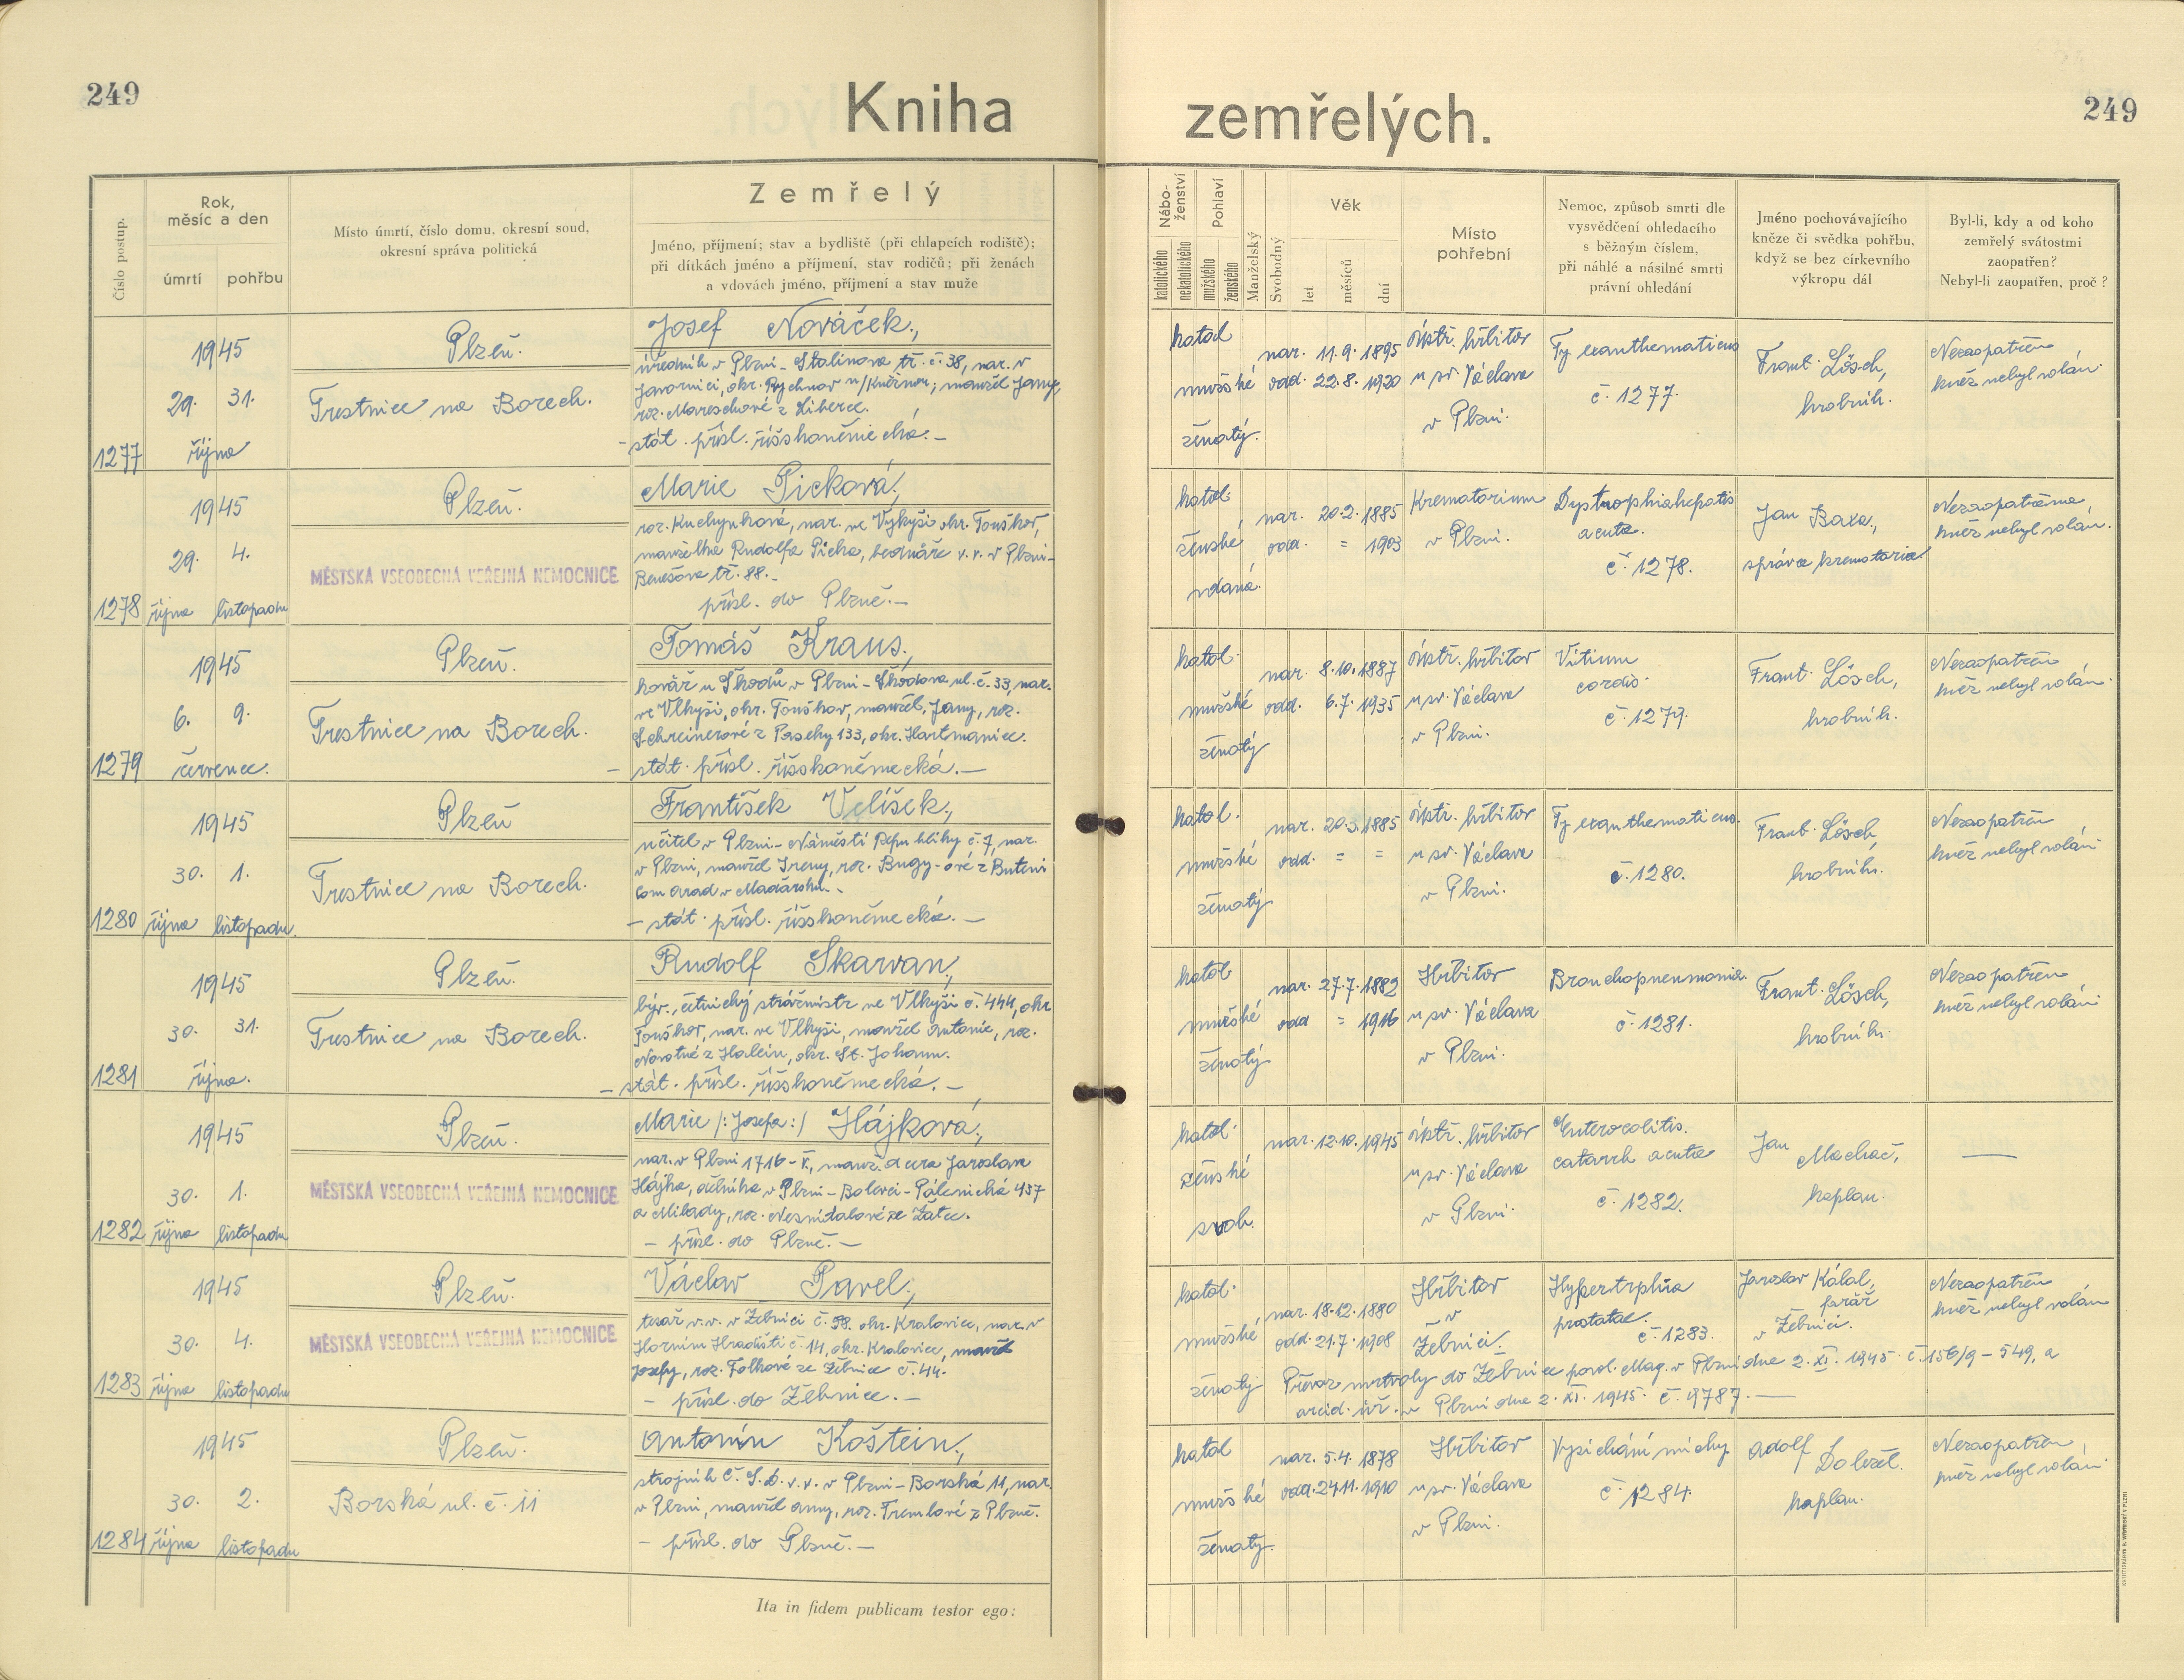 249
Kniha
zemřelých.
249
Číslo postup.
Rok,
měsíc a den
úmrtí
pohřbu
Místo úmrtí, číslo domu, okresní soud,
okresní správa politická
Zemřelý
Jméno, příjmení; stav a bydliště (při chlapcích rodiště);
při dítkách jméno a příjmení, stav rodičů; při ženách
a vdovách jméno, příjmení a stav muže
Nábo-
ženství
katolického
nekatolického
Pohlaví
mužského
ženského
Manželský
Svobodný
Věk
let
měsíců
dní
Místo
pohřební
Nemoc, způsob smrti dle
vysvědčení ohledacího
s běžným číslem,
při náhlé a násilné smrti
právní ohledání
Jméno pochovávajícího
kněze či svědka pohřbu,
když se bez církevního
výkropu dál
Byl-li, kdy a od koho
zemřelý svátostmi
zaopatřen?
Nebyl-li zaopatřen, proč?
1277
1945
29. 31.
října
Plzeň.
Trestnice na Borech.
Josef Nováček,
úředník v Plzni - Stalinova tř. č. 38, nar. v
Javornici, okr. Rychnov n/Kněžnou; manžel Jany,
roz. Mareschové z Liberce.
- stát. přísl. říšskoněmecká. -
katol
mužské
ženatý.
nar. 11.9. 1895
odd. 22.8. 1920
ústř. hřbitov
u sv. Václava
v Plzni.
Ty exanthematicus
č. 1277.
Frant. Lösch,
hrobník.
Nezaopatřen
kněz nebyl volán.
1278
1945
29. 4.
října listopadu
Plzeň.
MĚSTSKÁ VŠEOBECNÁ VEŘEJNÁ NEMOCNICE
Marie Picková,
roz. Kuchynková, nar. ve Vykyši okr. Touškov,
manželka Rudolfa Picka, bednáře v. v. v Plzni -
Benešova tř. 88. -
přísl. do Plzně. -
katol.
ženské
vdaná.
nar. 20.2. 1885
odd. = 1903
Krematorium
v Plzni.
Dystrophiahepatis
acuta.
č. 1278.
Jan Baxa,
správce krematoria.
Nezaopatřena
kněz nebyl volán.
1279
1945
6. 9.
července.
Plzeň.
Trestnice na Borech.
Tomáš Kraus,
kovář u Škodů v Plzni - Škodova ul. č. 33, nar.
ve Vlkyši, okr. Touškov, manžel Jany, roz.
Schreinerové z Paseky 133, okr. Hartmanice.
- stát. přísl. říšskoněmecká. -
katol.
mužské
ženatý
nar. 8.10. 1887
odd. 6.7. 1935
ústř. hřbitov
u sv. Václava
v Plzni.
Vitium
cordis.
č. 1279.
Frant. Lösch,
hrobník.
Nezaopatřen
kněz nebyl volán.
1280
1945
30. 1.
října listopadu.
Plzeň
Trestnice na Borech.
František Velíšek,
učitel v Plzni - Náměstí Republiky č. 7, nar.
v Plzni, manžel Ireny, roz. Bugy-ové z Buteni
com Arad v Maďarsku. -
- stát. přísl. říšskoněmecká. -
katol.
mužské
ženatý
nar. 20.3. 1885
odd. = =
ústř. hřbitov
u sv. Václava
v Plzni.
Ty exanthematicus.
č. 1280.
Frant. Lösch,
hrobník.
Nezaopatřen
kněz nebyl volán.
1281
1945
30. 31.
října.
Plzeň.
Trestnice na Borech.
Rudolf Skarvan,
býv. četnický strážmistr ve Vlkyši č. 444, okr
Touškov, nar. ve Vlkyši, manžel Antonie, roz.
Novotné z Halein, okr. St. Johann.
- stát. přísl. říšskoněmecká. -
katol
mužské
ženatý
nar. 27.7. 1882
odd = 1916
Hřbitov
u sv. Václava
v Plzni.
Bronchopneumonia.
č. 1281.
Frant. Lösch,
hrobník.
Nezaopatřen
kněz nebyl volán
1282
1945
30. 1.
října listopadu
Plzeň.
MĚSTSKÁ VŠEOBECNÁ VEŘEJNÁ NEMOCNICE
Marie /: Josefa :/ Hájková,
nar. v Plzni 1716 - V., manž. dcera Jaroslava
Hájka, dělníka v Plzni - Bolevci - Pálenická 457
a Milady, roz. Nesnídalové ze Žatce.
- přísl. do Plzně. -
katol.
ženské
svob.
nar. 12.10. 1945
ústř. hřbitov
u sv. Václava
v Plzni.
Enterocolitis.
catarrh acuta
č. 1282.
Jan
Machač,
kaplan.
—
1283
1945
30. 4.
října listopadu
Plzeň.
MĚSTSKÁ VŠEOBECNÁ VEŘEJNÁ NEMOCNICE
Václav Pavel,
tesař v. v. v Žebnici č. 58. okr. Kralovice, nar. v
Horním Hradišti č. 14, okr. Kralovice, manžel
Josefy, roz. Folkové ze Žebnice č. 44.
- přísl. do Žebnice. -
katol.
mužské
ženatý
nar. 18.12. 1880
odd. 21.7. 1908
Hřbitov
v
Žebnici.
Hypertrphia
prostatae.
č. 1283.
Jaroslav Kálal,
farář
v Žebnici.
Nezaopatřen
kněz nebyl volán
Převoz mrtvoly do Žebnice povol. Mag. v Plzni dne 2. XI. 1945 č. 156/9 - 549, a
arcid. úř. v Plzni dne 2. XI. 1945. č. 9787. —
1284
1945
30. 2.
října listopadu
Plzeň.
Borská ul. č. 11
Antonín Koštein,
strojník Č. S. D. v. v. v Plzni - Borská 11, nar.
v Plzni, manžel Anny, roz. Tremlové z Plzně.
- přísl. do Plzně. -
katol
mužské
ženatý.
nar. 5.4. 1878
odd. 24.11. 1910
Hřbitov
u sv. Václava
v Plzni.
Vysichání míchy
č. 1284.
Adolf Doležel.
kaplan.
Nezaopatřen
kněz nebyl volán.
Ita in fidem publicam testor ego: